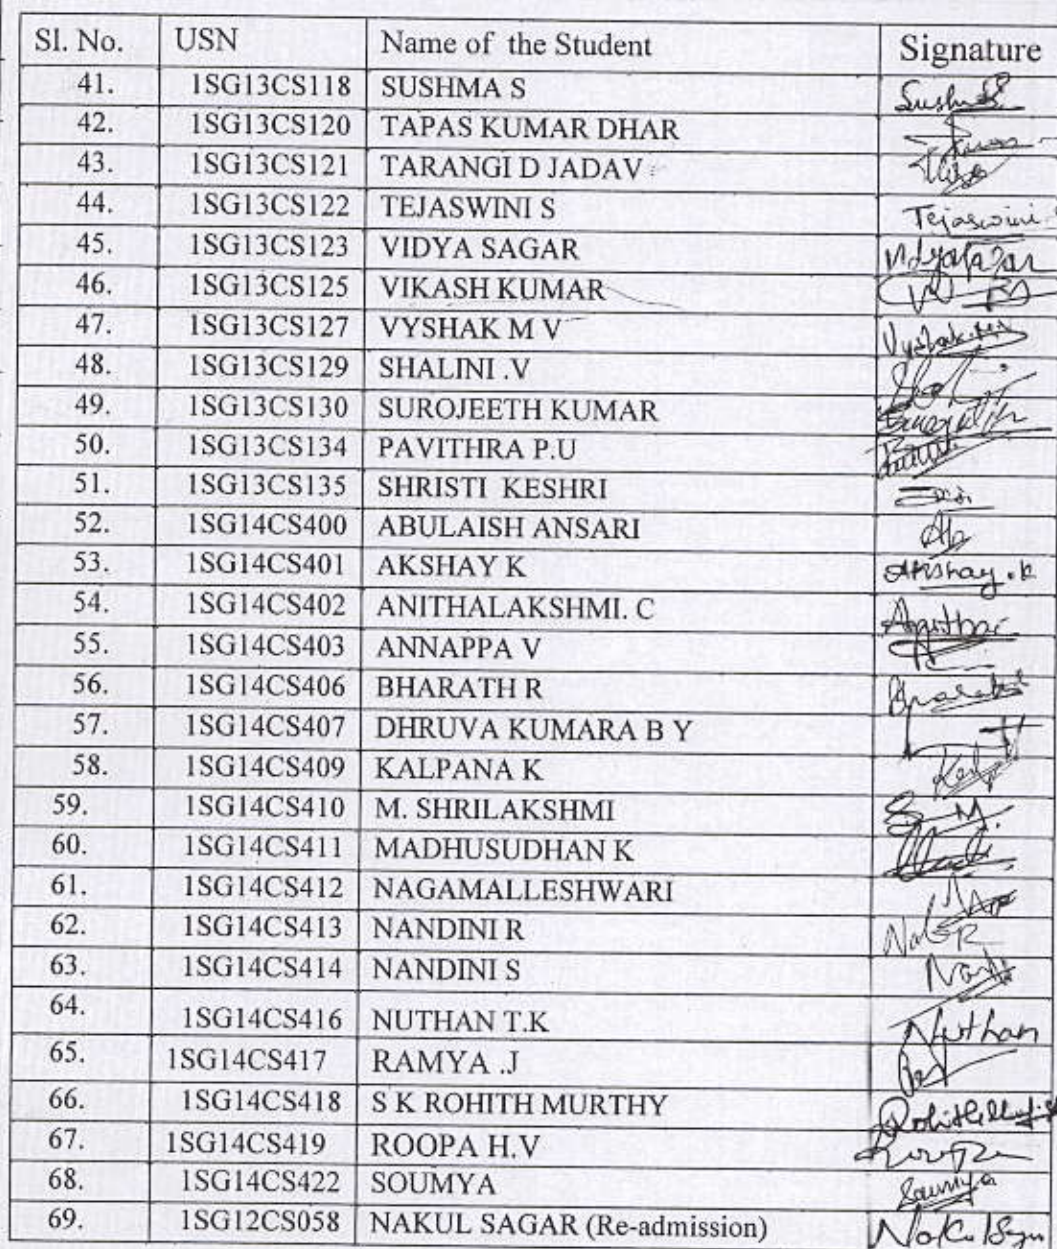 Sl. No. USN Name of the Student Signature
41. 1SG13CS118 SUSHMA S
42. 1SG13CS120 TAPAS KUMAR DHAR
43. 1SG13CS121 TARANGI D JADAV
44. 1SG13CS122 TEJASWINI S Tejaswini
45. 1SG13CS123 VIDYA SAGAR
46. 1SG13CS125 VIKASH KUMAR
47. 1SG13CS127 VYSHAK M V
48. 1SG13CS129 SHALINI .V
49. 1SG13CS130 SUROJEETH KUMAR
50. 1SG13CS134 PAVITHRA P.U
51. 1SG13CS135 SHRISTI KESHRI
52. 1SG14CS400 ABULAISH ANSARI
53. 1SG14CS401 AKSHAY K Akshay.k
54. 1SG14CS402 ANITHALAKSHMI. C
55. 1SG14CS403 ANNAPPA V
56. 1SG14CS406 BHARATH R
57. 1SG14CS407 DHRUVA KUMARA B Y
58. 1SG14CS409 KALPANA K
59. 1SG14CS410 M. SHRILAKSHMI
60. 1SG14CS411 MADHUSUDHAN K
61. 1SG14CS412 NAGAMALLESHWARI
62. 1SG14CS413 NANDINI R
63. 1SG14CS414 NANDINI S
64. 1SG14CS416 NUTHAN T.K Nuthan
65. 1SG14CS417 RAMYA .J
66. 1SG14CS418 S K ROHITH MURTHY
67. 1SG14CS419 ROOPA H.V
68. 1SG14CS422 SOUMYA
69. 1SG12CS058 NAKUL SAGAR (Re-admission)